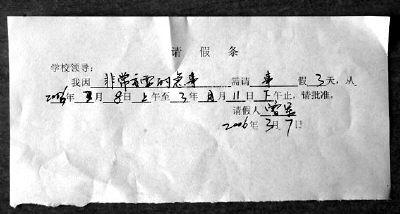 请假条
学校领导：
我因 非常重要的急事 需请 事 假 3 天，从
2006年 3月 8日 上午至 3年 月 11日 下午止，请批准。
请假人
2006年 3月 7日